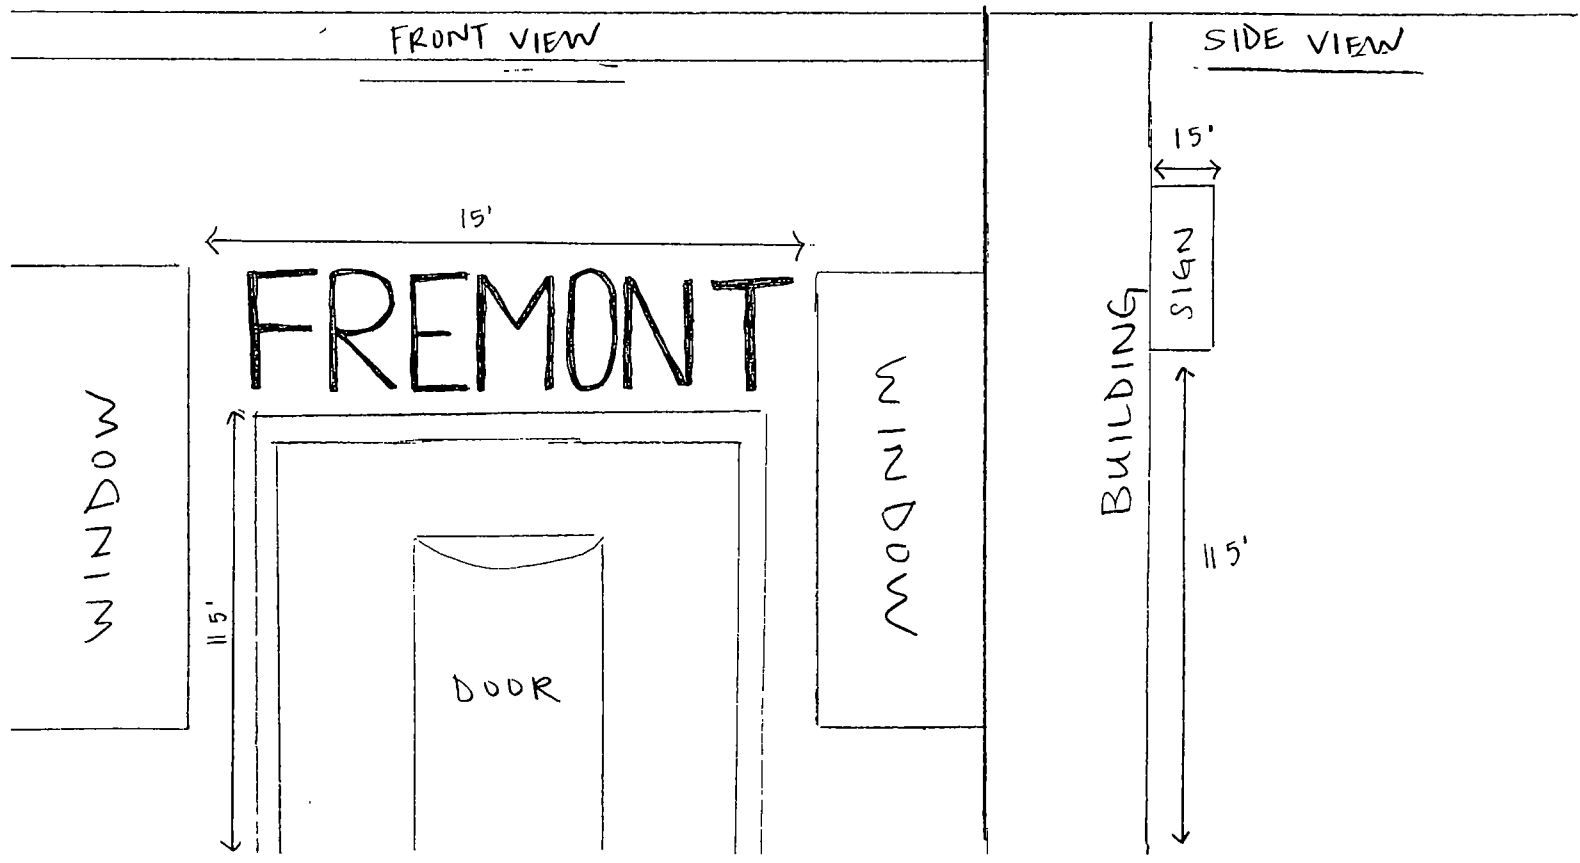 FRONT VIEW
15'
FREMONT
WINDOW
WINDOW
11 5'
DOOR
SIDE VIEW
15'
SIGN
BUILDING
11 5'